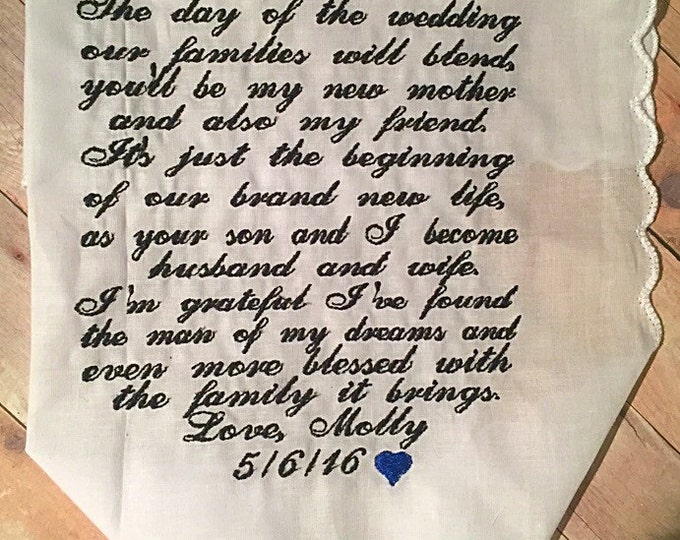 The day of the wedding
our families will blend,
you'll be my new mother
and also my friend.
It's just the beginning
of our brand new life,
as your son and I become
husband and wife.
I'm grateful I've found
the man of my dreams and
even more blessed with
the family it brings.
Love, Molly
5/6/16